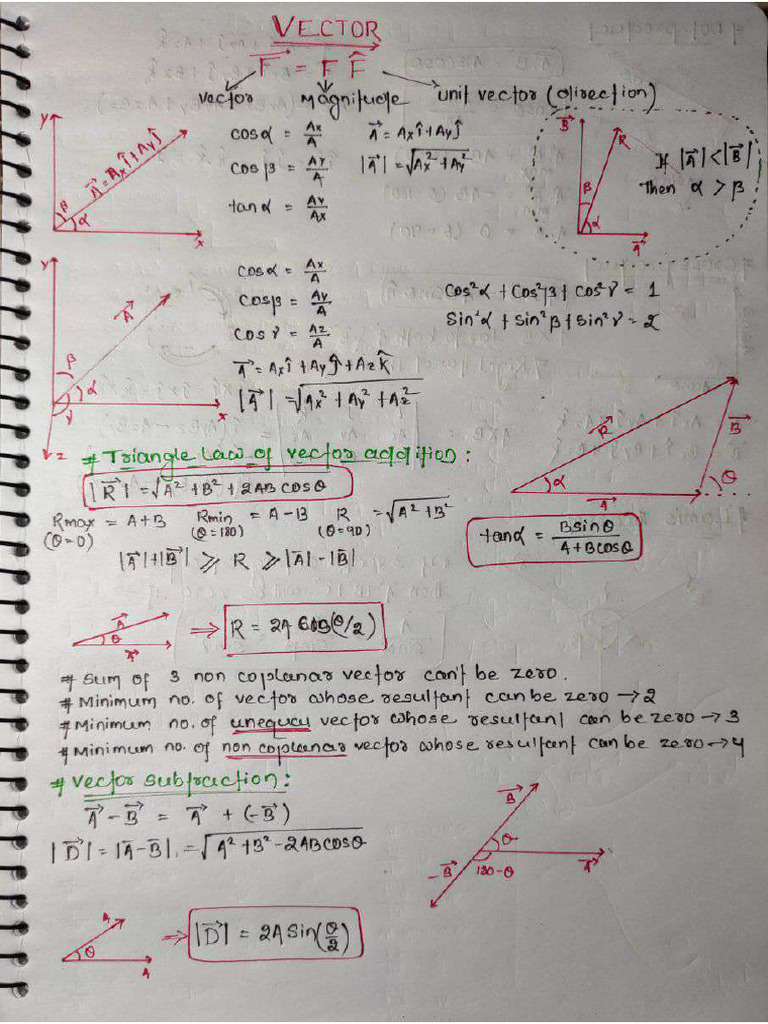 VECTOR
F⃗ = F F̂
vector magnitude unit vector (direction)
y
A⃗ = Axî + Ayĵ
β
α
x
cosα = Ax/A
cosβ = Ay/A
tanα = Ay/Ax
A⃗ = Axî + Ayĵ
|A⃗| = √(Ax² + Ay²)
B⃗
R
β
α
A⃗
If |A⃗| < |B⃗|
Then α > β
y
A⃗
β
α
γ
x
z
cosα = Ax/A
cosβ = Ay/A
cosγ = Az/A
A⃗ = Axî + Ayĵ + Azk̂
|A⃗| = √(Ax² + Ay² + Az²)
cos²α + cos²β + cos²γ = 1
sin²α + sin²β + sin²γ = 2
# Triangle Law of vector addition :
|R⃗| = √(A² + B² + 2AB cosθ)
Rmax = A + B
(θ=0)
Rmin = A - B
(θ=180)
R = √(A² + B²)
(θ=90)
|A⃗| + |B⃗| ⩾ R ⩾ |A̅| - |B̅|
R⃗
B⃗
α
A⃗
θ
tanα = Bsinθ/A+Bcosθ
A⃗
θ
A⃗
⇒ R = 2A cos(θ/2)
# Sum of 3 non coplanar vector can't be zero.
# Minimum no. of vector whose resultant can be zero → 2
# Minimum no. of unequal vector whose resultant can be zero → 3
# Minimum no. of non coplanar vector whose resultant can be zero → 4
# Vector subtraction :
A⃗ - B⃗ = A⃗ + (-B⃗)
|D⃗| = |A̅ - B̅| = √(A² + B² - 2AB cosθ)
B⃗
θ
-B⃗
180-θ
A⃗
A
θ
A
⇒ |D⃗| = 2A Sin(θ/2)